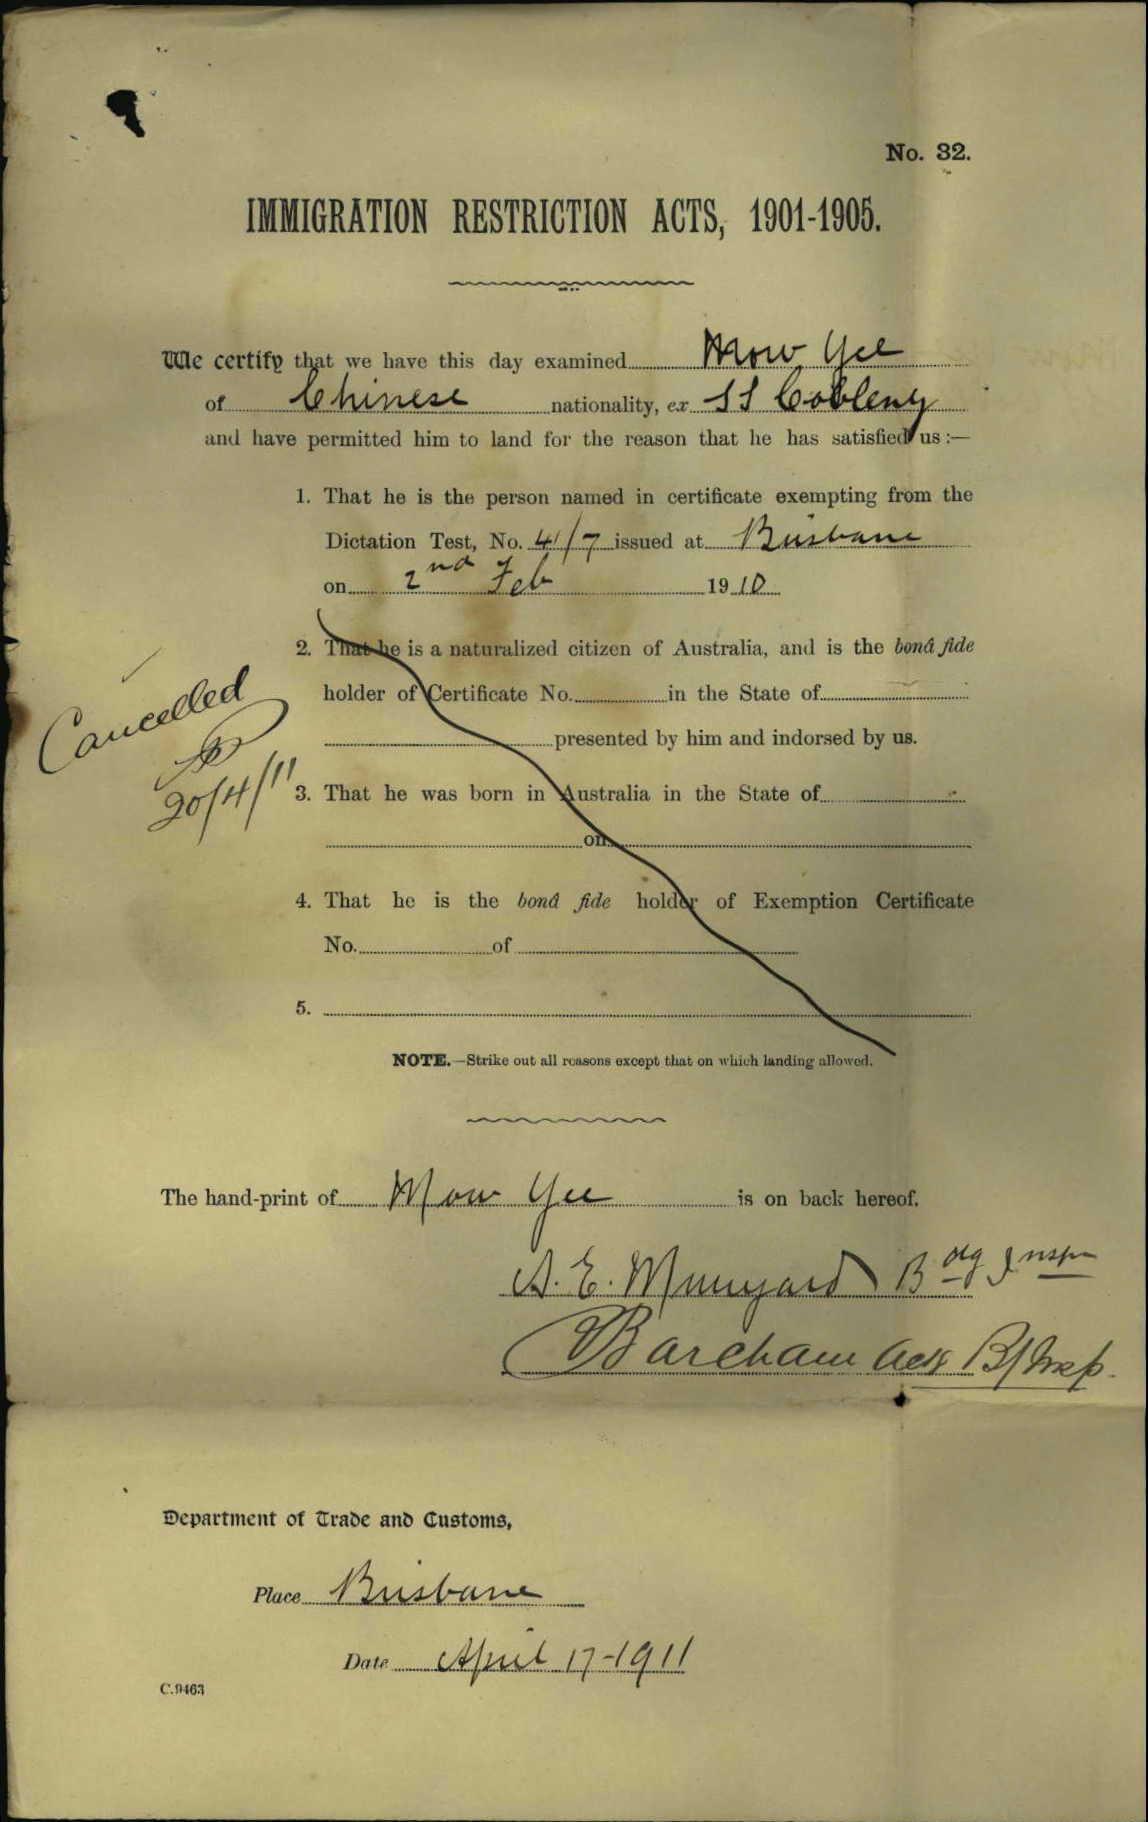 No. 32.
IMMIGRATION RESTRICTION ACTS, 1901-1905.
We certify that we have this day examined Mow Yee
of Chinese nationality, ex SS Coblenz
and have permitted him to land for the reason that he has satisfied us :—
1. That he is the person named in certificate exempting from the
Dictation Test, No. 41/7 issued at Brisbane
on 2nd Feb 1910
2. That he is a naturalized citizen of Australia, and is the bonâ fide
holder of Certificate No. in the State of
presented by him and indorsed by us.
Cancelled
20/4/11
3. That he was born in Australia in the State of
on
4. That he is the bonâ fide holder of Exemption Certificate
No. of
5.
NOTE.—Strike out all reasons except that on which landing allowed.
The hand-print of Mow Yee is on back hereof.
A. E. Munyard Bdg Inspr
Barcham Actg B/Insp.
Department of Trade and Customs,
Place Brisbane
Date April 17-1911
C.9463